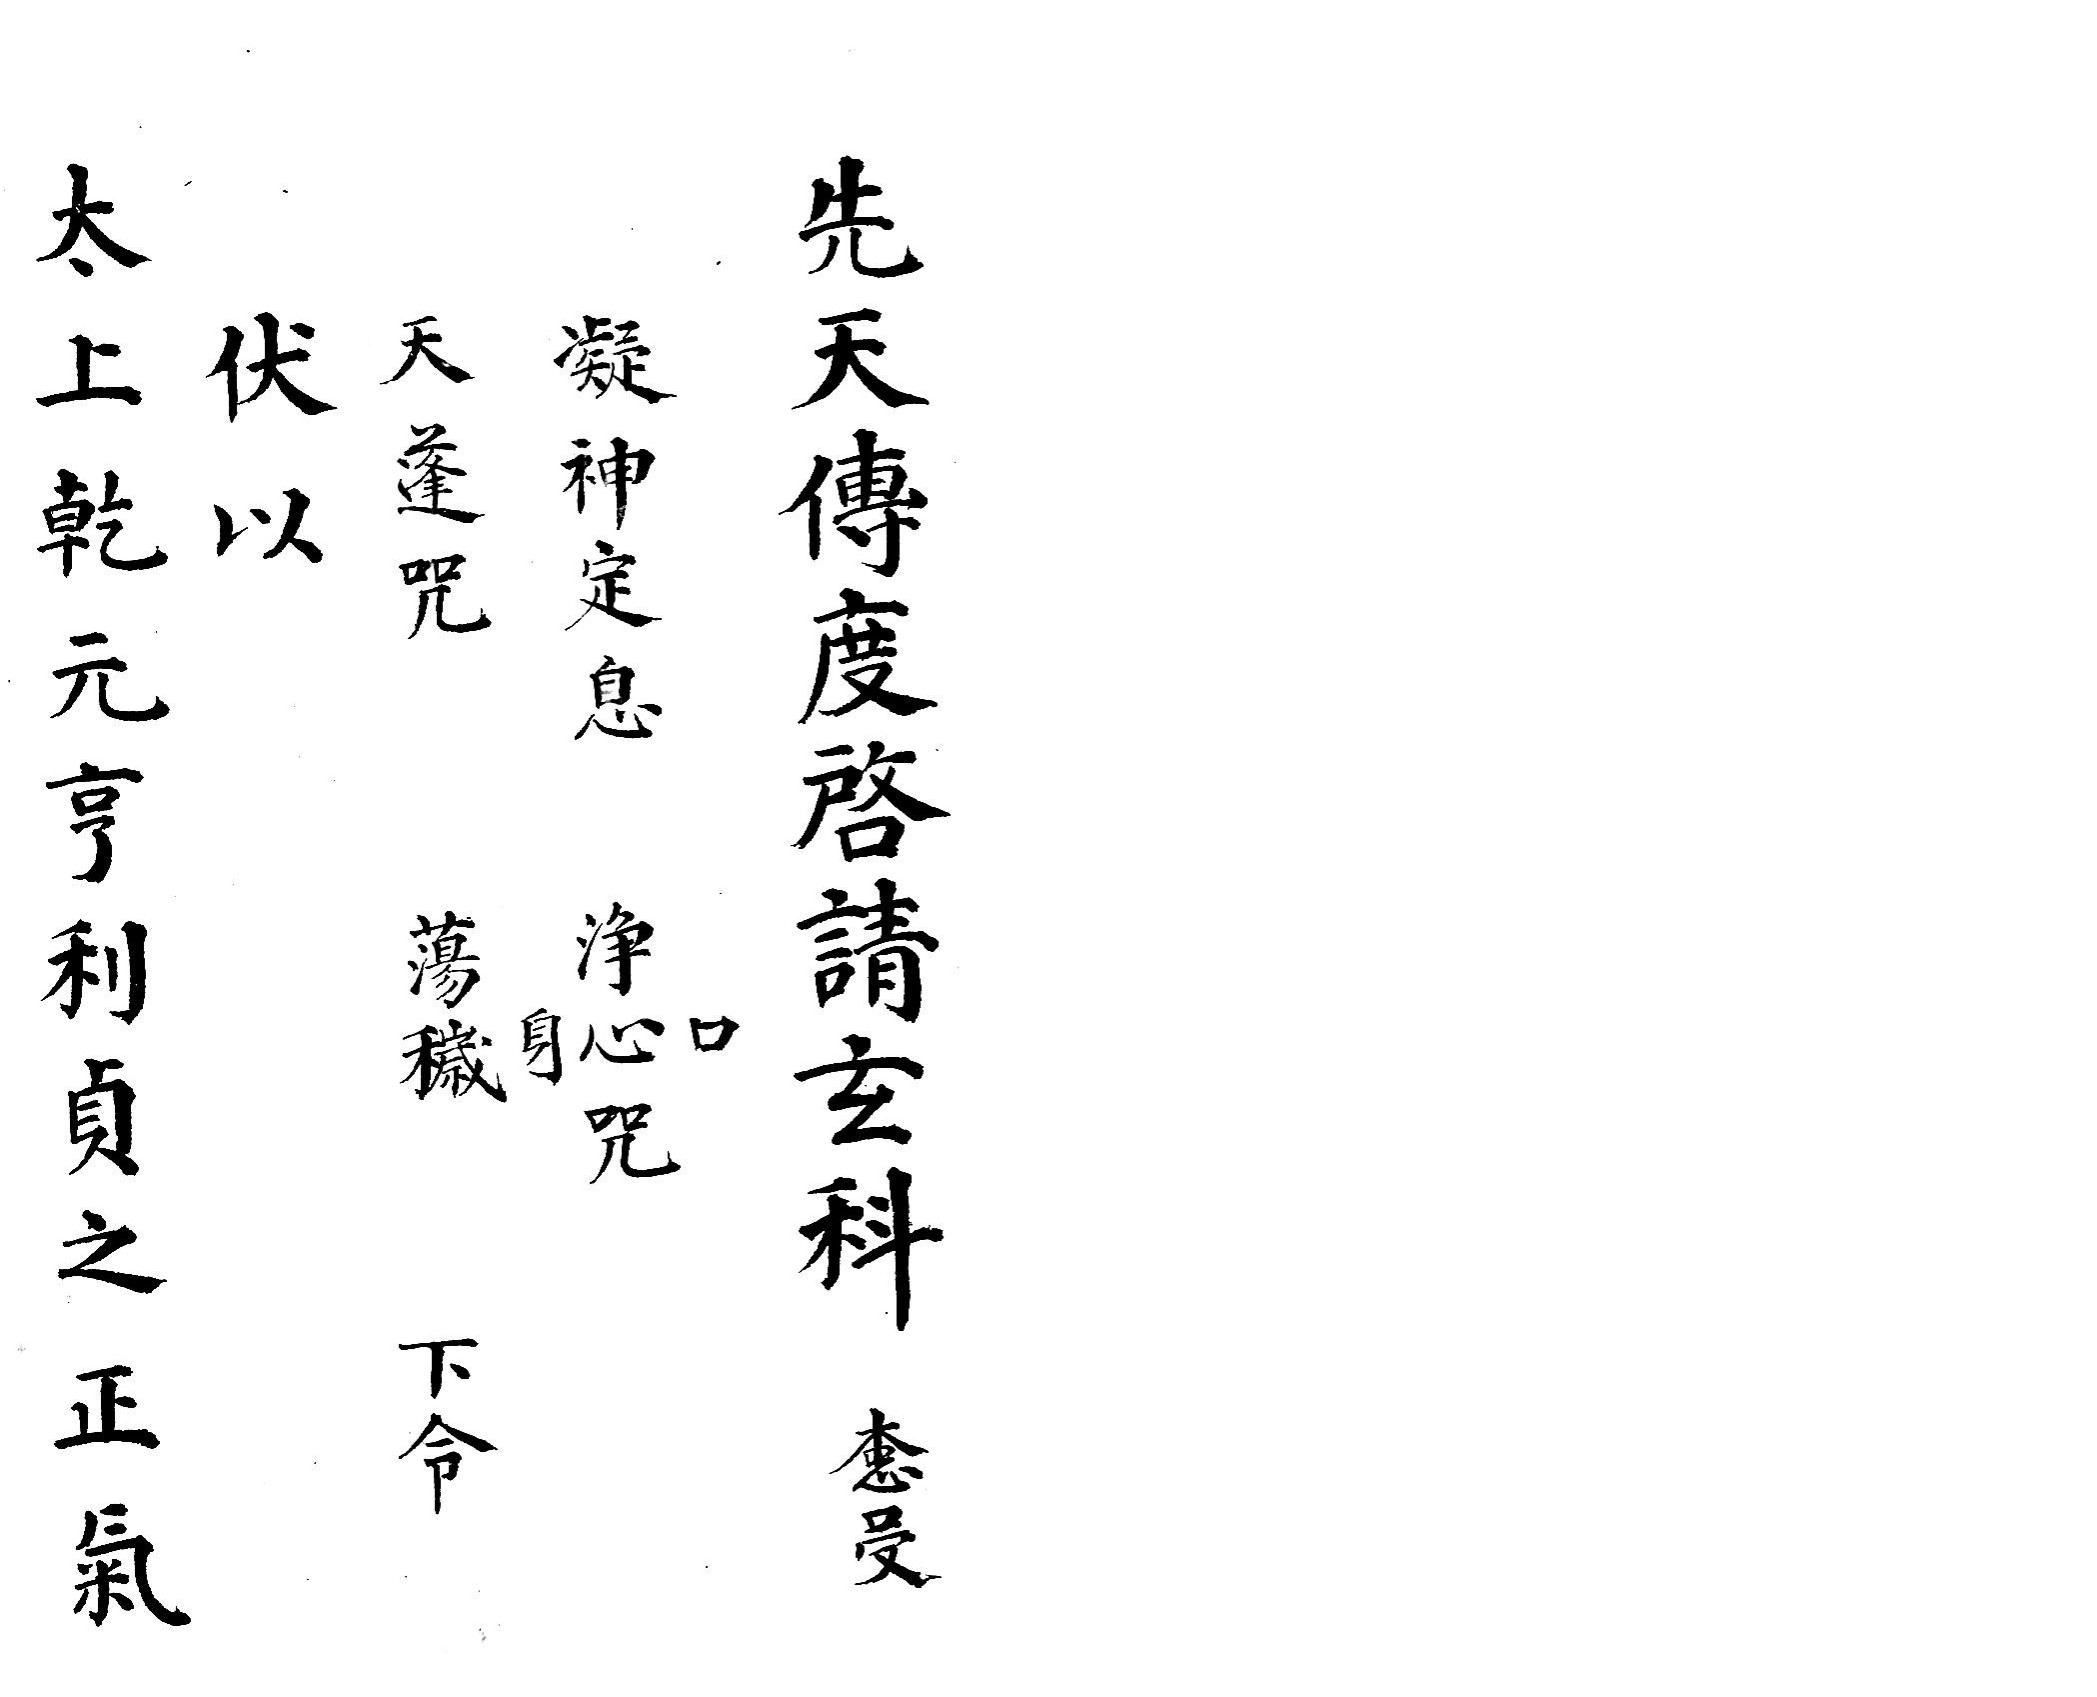 先天傳度啓請玄科 受
口
凝神定息 浄心咒
身
天蓬咒 蕩穢 下令
伏以
太上乾元亨利貞之正氣